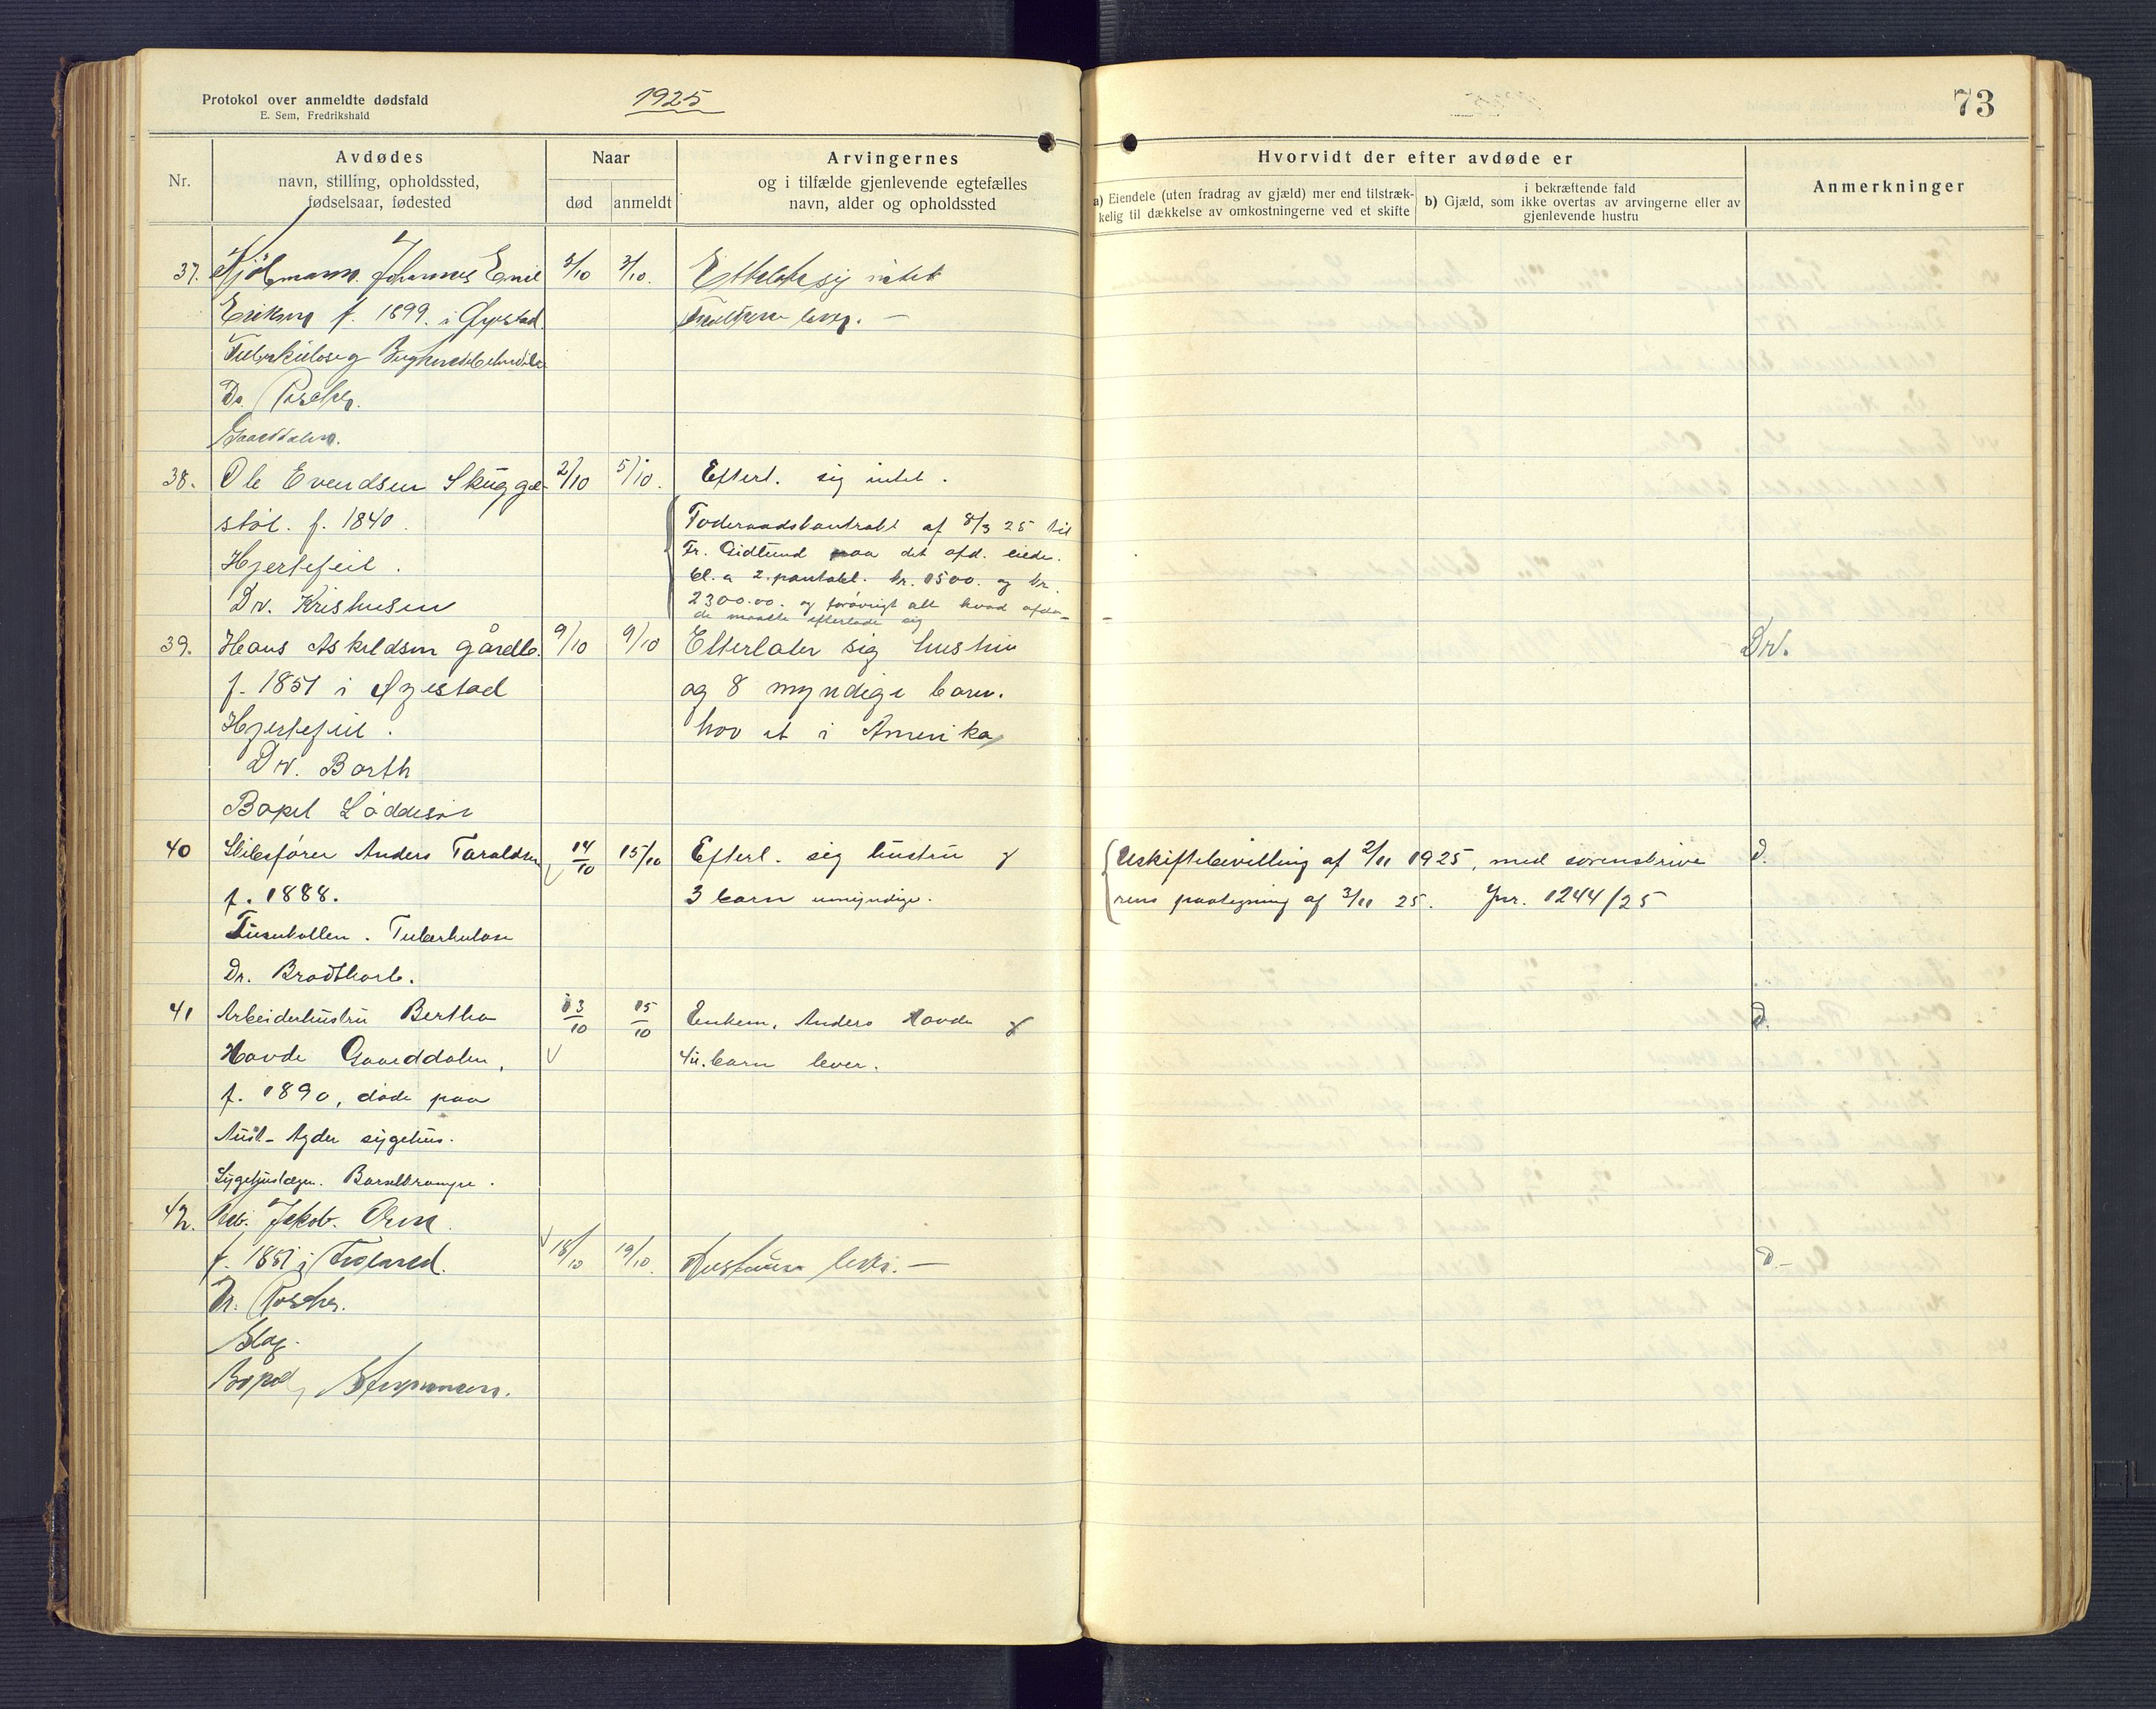 Protokol over anmeldte dødsfald
E. Sem, Fredrikshald
1925
73
Nr.
Avdødes
navn, stilling, opholdssted,
fødselsaar, fødested
Naar
død
anmeldt
Arvingernes
og i tilfælde gjenlevende egtefælles
navn, alder og opholdssted
Hvorvidt der efter avdøde er
a) Eiendele (uten fradrag av gjæld) mer end tilstræk-
kelig til dækkelse av omkostningerne ved et skifte
i bekræftende fald
b) Gjæld, som ikke overtas av arvingerne eller av
gjenlevende hustru
Anmerkninger
37. Sjömann Johannes Emil 3/10 3/10. Efterlater sig intet
f. 1899. i Øyestad
Tuberkulose
Dr.
Gaarddalen.
38. Ole Evendsen Skugge- 2/10 5/10. Efterl. sig intet.
støl. f. 1840.
Hjertefeil.
Dr. Kristensen
Føderaadskontrakt af 8/3 25 til
Fr. Gidlund paa det afd. eiede.
bl. a 2. pantobl. kr. 1500. og kr.
2300.00. og forøvrigt alt hvad afdø-
de maatte efterlade sig
39. Hans Askildsen gårdb. 9/10 9/10 Efterlater sig hustru Dr.
f. 1851 i Øyestad og 8 myndige barn.
Hjertefeil. hvor et i Amerika
Dr. Barth
Bopel Løddesøl
40 Skibsfører Anders Taraldsen 14/10 15/10 Efterl. sig hustru &
f. 1888. 3 barn umyndige.
Tuberkulose
Dr. Brodtkorb.
Uskiftebevilling af 2/11 1925, med sorenskrive
rens paategning af 3/11 25. Jnr. 1244/25
d.
41 Arbeiderhustru Bertha 13/10 15/10 Enkem. Anders Havde &
Havde Gaarddalen, 4 u. barn lever.
f. 1890, døde paa
Aust-Agder sygehus.
Sygehuslægen.
d.
42. Jakob
f. 1851 i 18/10 19/10. lever. —
Dr.
Slag.
Bopæl,
d.-